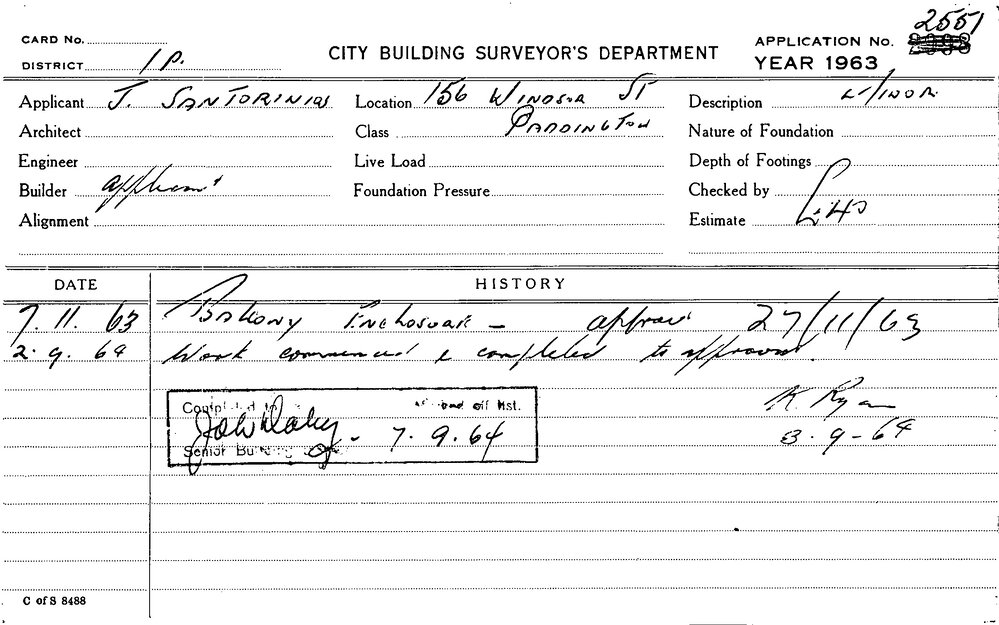 2551
CARD No.
DISTRICT 1 P.
CITY BUILDING SURVEYOR'S DEPARTMENT
APPLICATION No.
YEAR 1963
Applicant J. SANTORINIOS Location 156 WINDSOR ST Description MINOR
Architect Class PADDINGTON Nature of Foundation
Engineer Live Load Depth of Footings
Builder applicant Foundation Pressure Checked by
Alignment Estimate £140
DATE HISTORY
7.11.63 Balcony Enclosure - approved 27/11/63
2.9.64 Work commenced & completed to approval.
K. Ryan
3.9-64
Completed to and off list.
7.9.64
Senior Building
C of S 8488